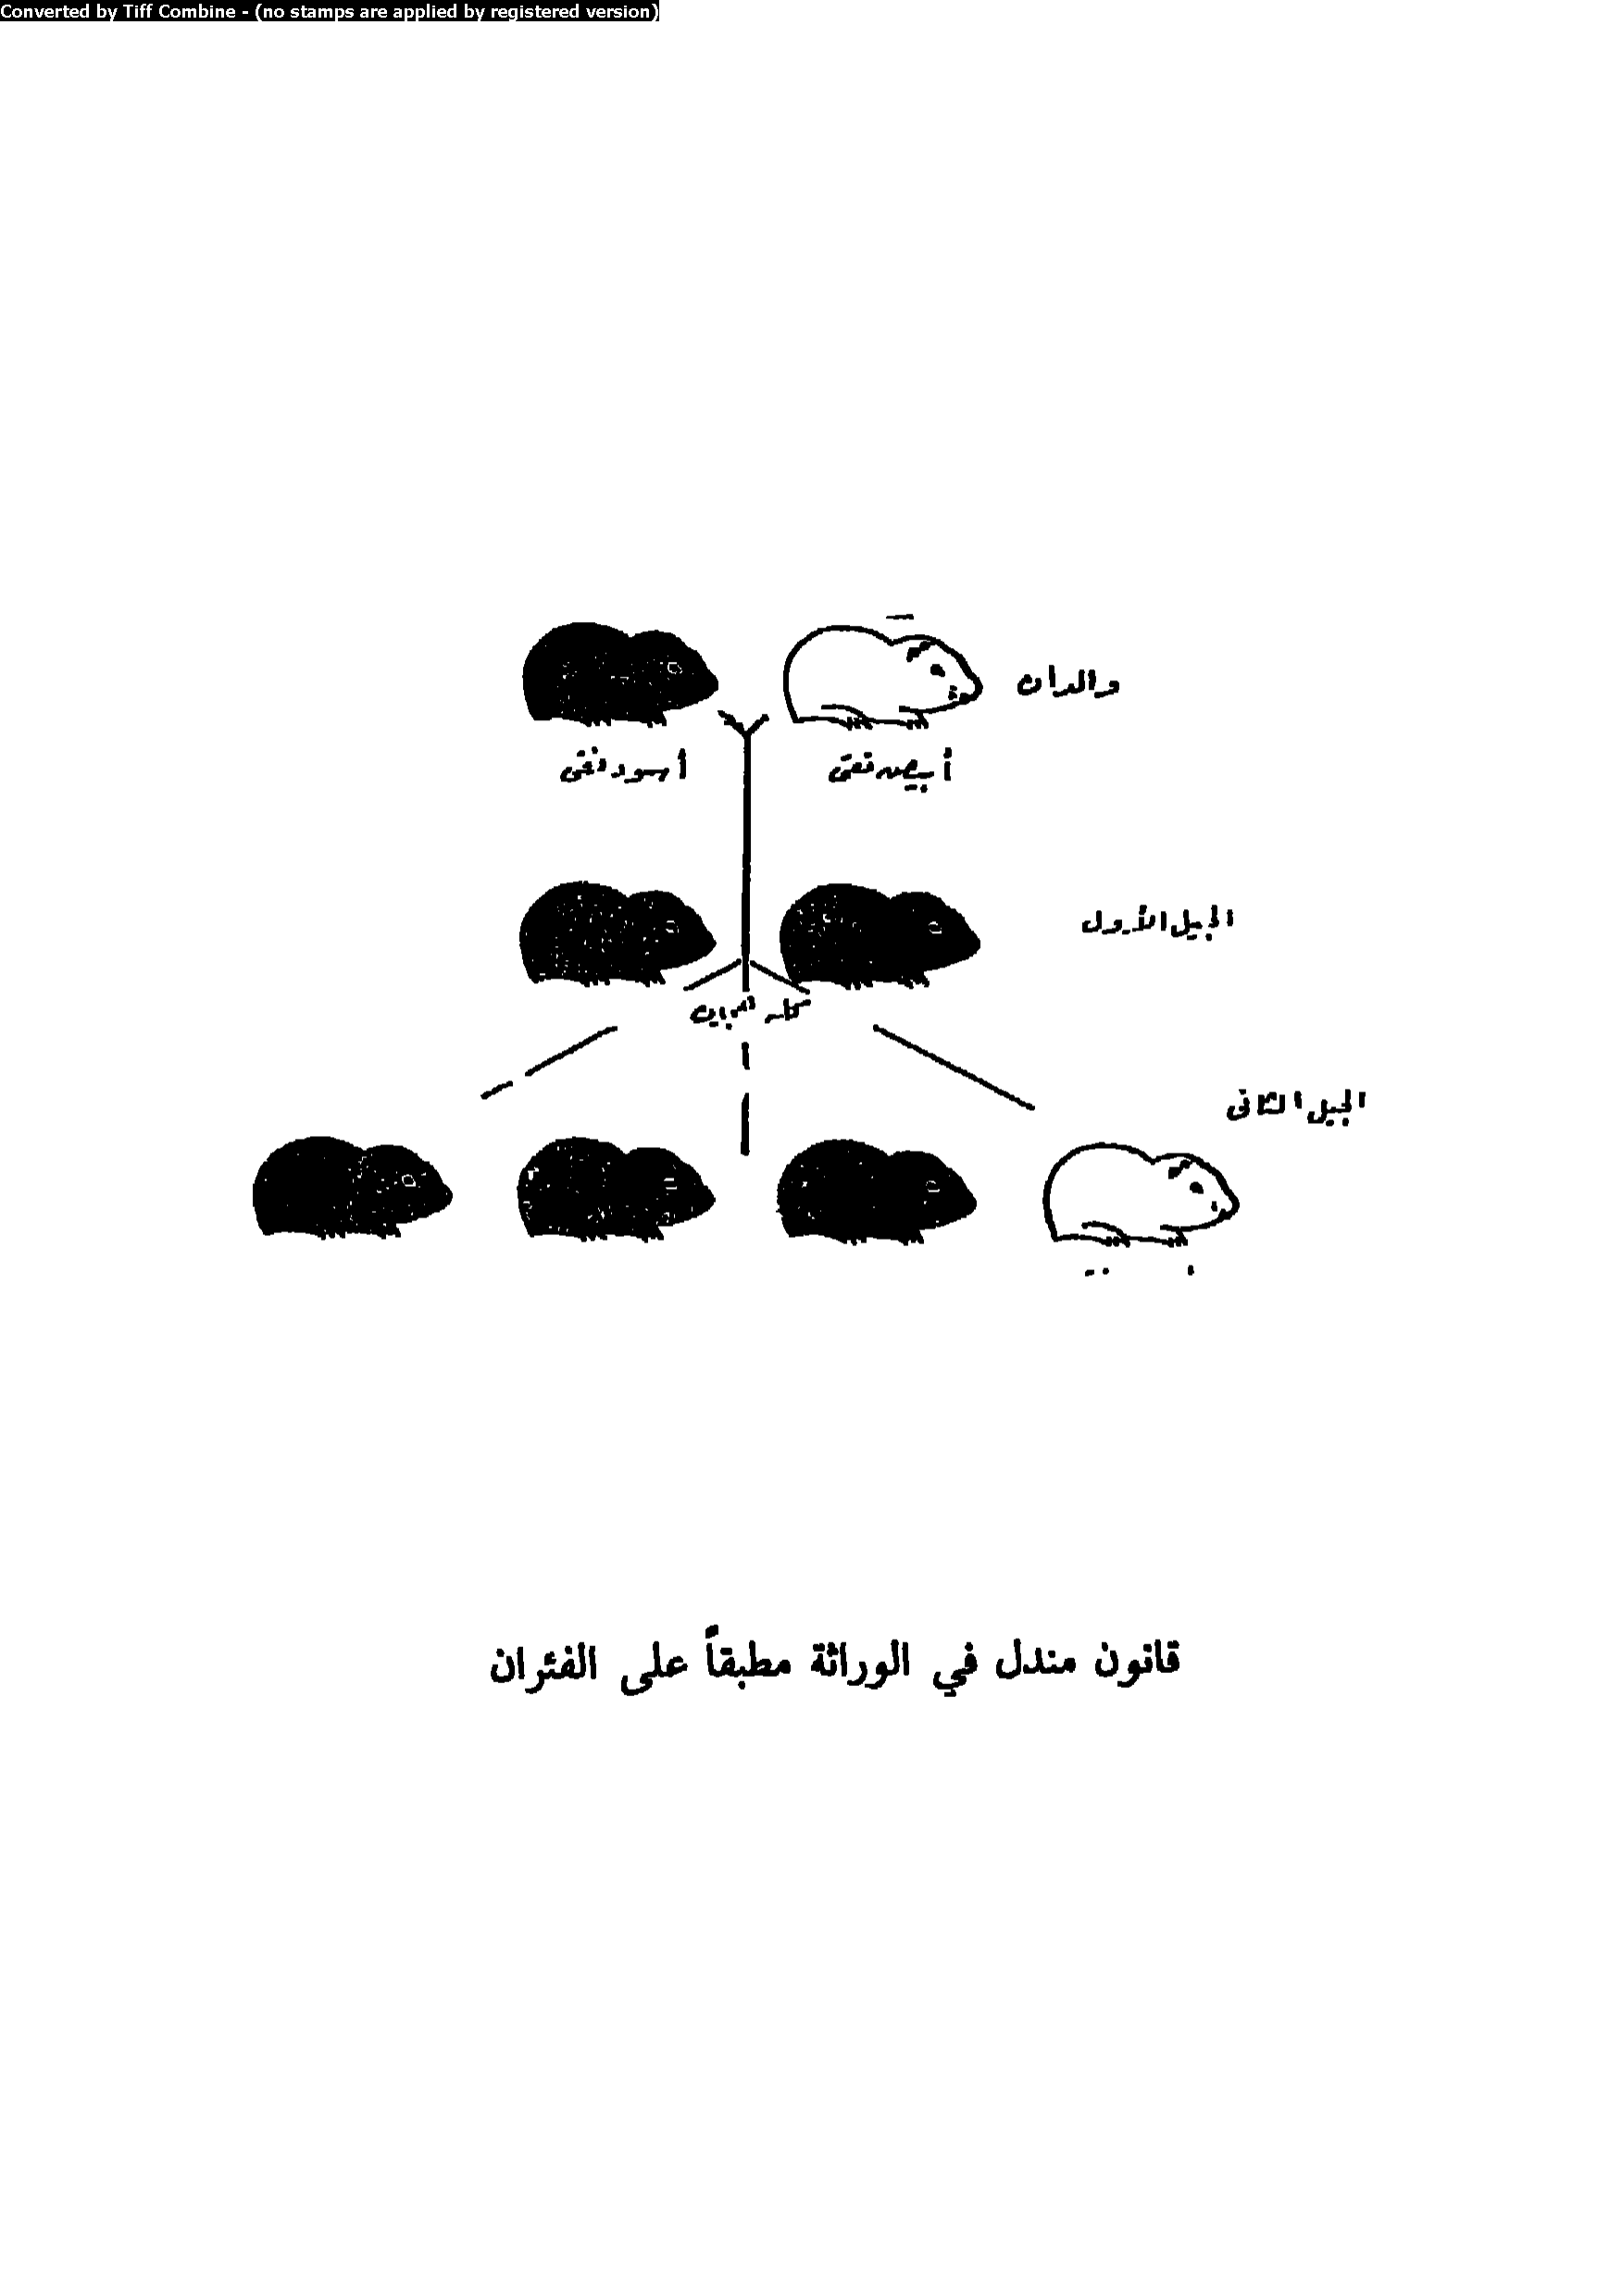 Converted by Tiff Combine - (no stamps are applied by registered version)
والدان
أبيض نقى
أسود نقى
الجيل الأول
الجيل الثانى
قانون مندل في الوراثة مطبقاً على الفئران